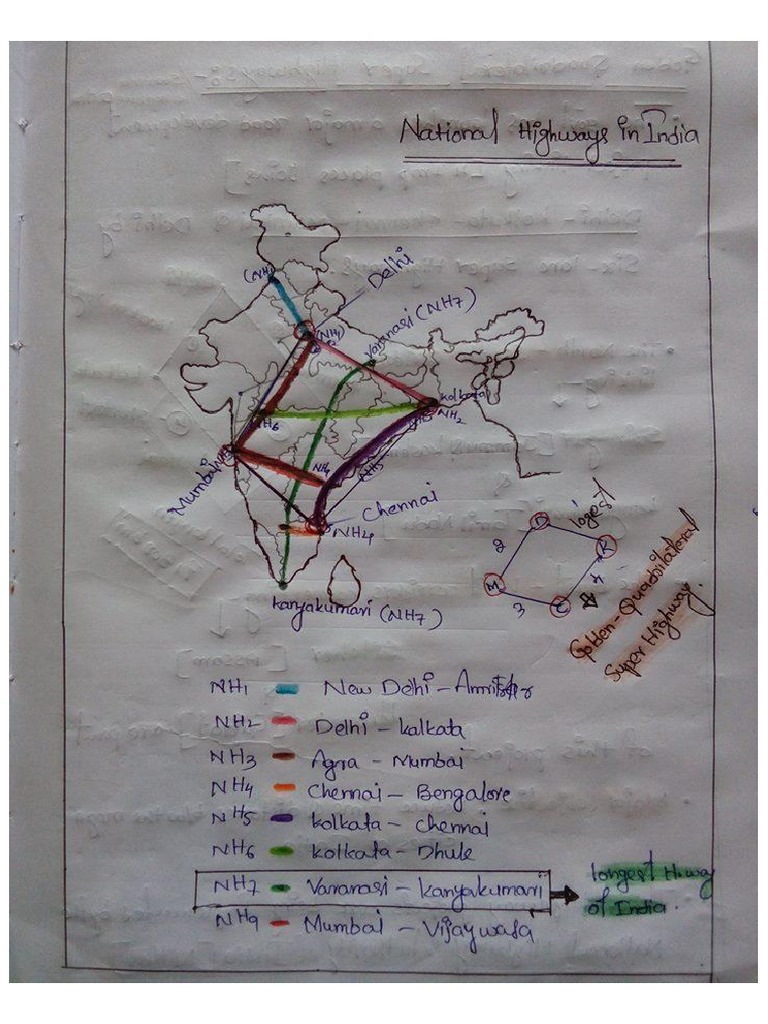 National Highways in India
(NH1)
Delhi
(NH1)
Varanasi (NH7)
Kolkata
NH2
NH6
Mumbai
NH4
NH5
Chennai
NH4
Kanyakumari (NH7)
D
logest
2
K
M
4
3
C
Golden-Quadrilateral
Super Highway.
NH1 New Delhi - Amritsar
NH2 Delhi - Kalkata
NH3 Agra - Mumbai
NH4 Chennai - Bengalore
NH5 Kolkata - Chennai
NH6 Kolkata - Dhule
NH7 Varanasi - Kanyakumari
longest H.way
of India.
NH9 Mumbai - Vijaywada